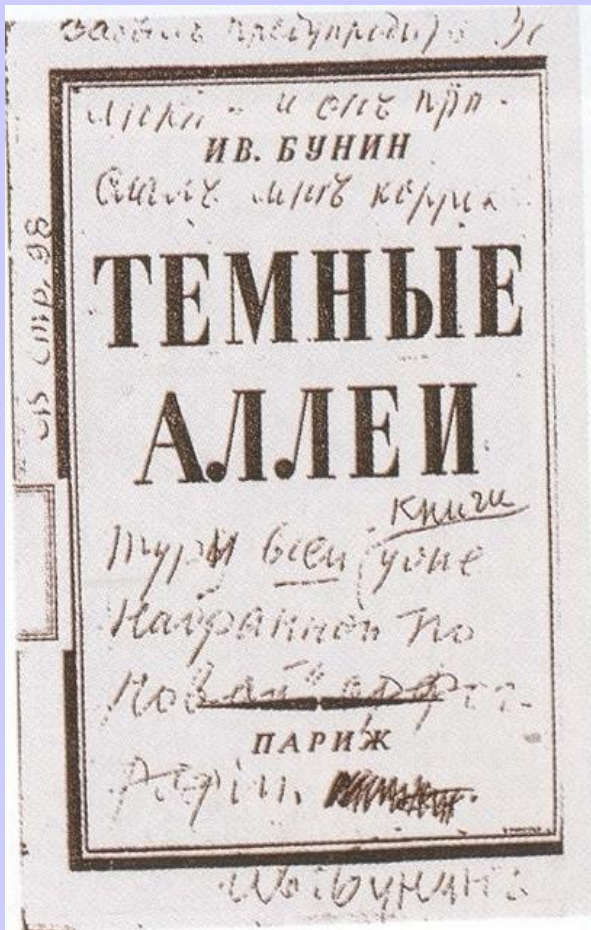 Забылъ предупредить
и онъ при-
ИВ. БУНИН
слалъ мнѣ коррек
ТЕМНЫЕ
АЛЛЕИ
книги
туру всей (уже
набранной по
новой" орфог-
ПАРИЖ
рафіи.
Ив. Бунинъ.
стр. 98